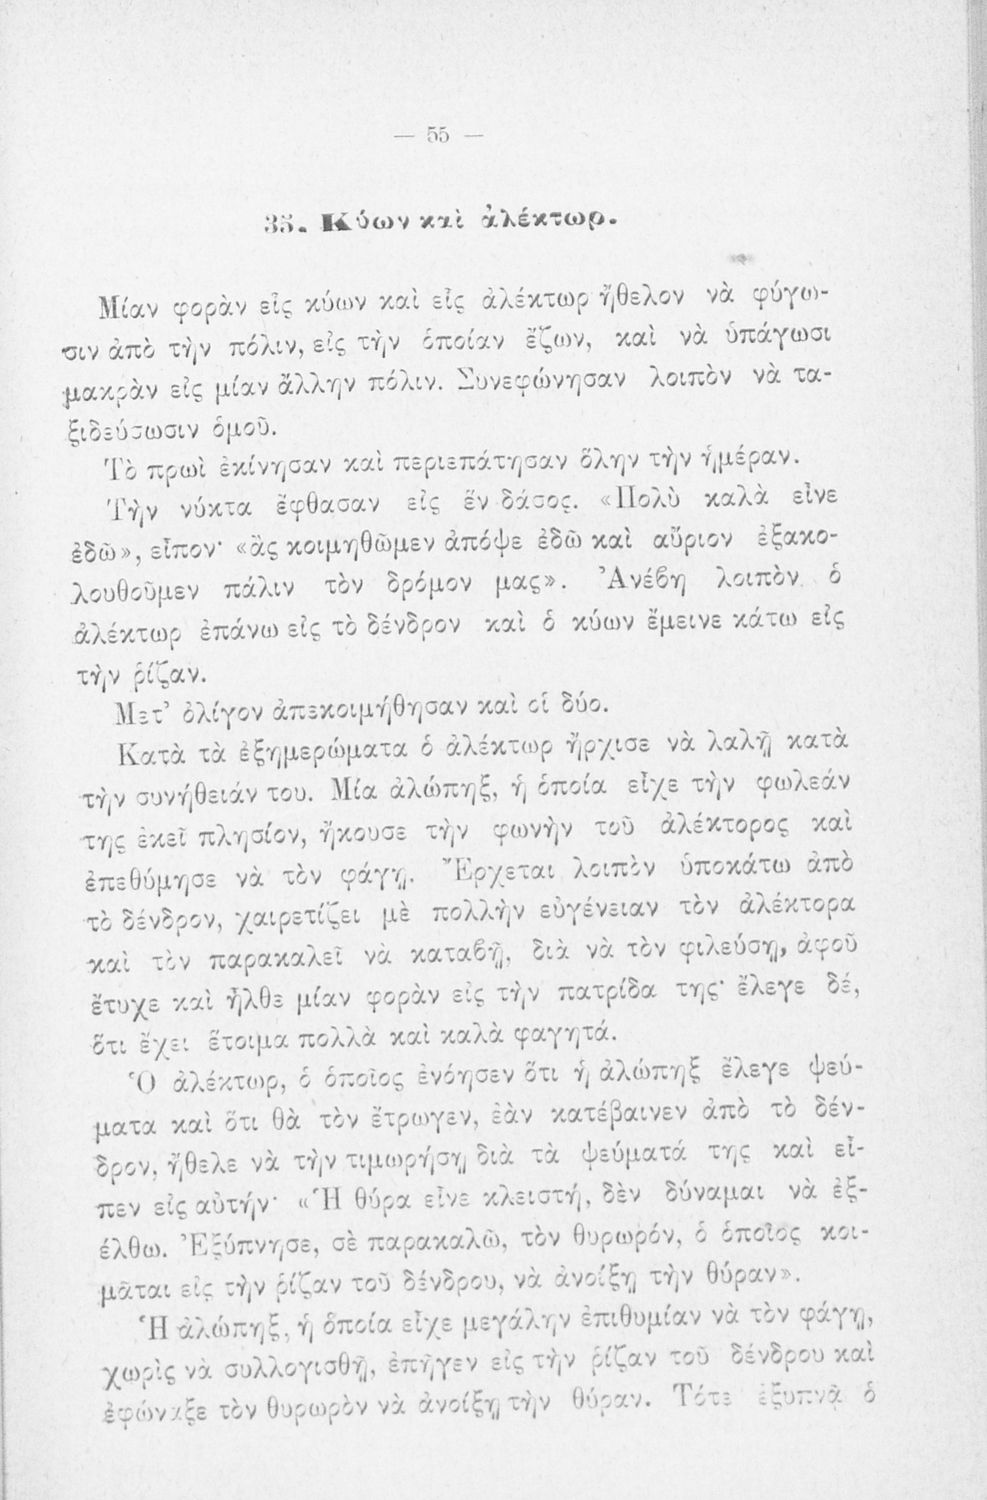 — 55 —
35. Κύων καὶ ἀλέκτωρ.
Μίαν φορὰν εἷς κύων καὶ εἷς ἀλέκτωρ ἤθελον νὰ φύγω-
σιν ἀπὸ τὴν πόλιν, εἰς τὴν ὁποίαν ἔζων, καὶ νὰ ὑπάγωσι
μακρὰν εἰς μίαν ἄλλην πόλιν. Συνεφώνησαν λοιπὸν νὰ τα-
ξιδεύσωσιν ὁμοῦ.
Τὸ πρωὶ ἐκίνησαν καὶ περιεπάτησαν ὅλην τὴν ἡμέραν.
Τὴν νύκτα ἔφθασαν εἰς ἓν δάσος. «Πολὺ καλὰ εἶνε
ἐδῶ», εἶπον· «ἂς κοιμηθῶμεν ἀπόψε ἐδῶ καὶ αὔριον ἐξακο-
λουθοῦμεν πάλιν τὸν δρόμον μας». Ἀνέβη λοιπὸν ὁ
ἀλέκτωρ ἐπάνω εἰς τὸ δένδρον καὶ ὁ κύων ἔμεινε κάτω εἰς
τὴν ῥίζαν.
Μετ' ὀλίγον ἀπεκοιμήθησαν καὶ οἱ δύο.
Κατὰ τὰ ἐξημερώματα ὁ ἀλέκτωρ ἤρχισε νὰ λαλῇ κατὰ
τὴν συνήθειάν του. Μία ἀλώπηξ, ἡ ὁποία εἶχε τὴν φωλεάν
της ἐκεῖ πλησίον, ἤκουσε τὴν φωνὴν τοῦ ἀλέκτορος καὶ
ἐπεθύμησε νὰ τὸν φάγῃ. Ἔρχεται λοιπὸν ὑποκάτω ἀπὸ
τὸ δένδρον, χαιρετίζει μὲ πολλὴν εὐγένειαν τὸν ἀλέκτορα
καὶ τὸν παρακαλεῖ νὰ καταβῇ, διὰ νὰ τὸν φιλεύσῃ, ἀφοῦ
ἔτυχε καὶ ἦλθε μίαν φορὰν εἰς τὴν πατρίδα της· ἔλεγε δέ,
ὅτι ἔχει ἕτοιμα πολλὰ καὶ καλὰ φαγητά.
Ὁ ἀλέκτωρ, ὁ ὁποῖος ἐνόησεν ὅτι ἡ ἀλώπηξ ἔλεγε ψεύ-
ματα καὶ ὅτι θὰ τὸν ἔτρωγεν, ἐὰν κατέβαινεν ἀπὸ τὸ δέν-
δρον, ἤθελε νὰ τὴν τιμωρήσῃ διὰ τὰ ψεύματά της καὶ εἶ-
πεν εἰς αὐτήν· «Ἡ θύρα εἶνε κλειστή, δὲν δύναμαι νὰ ἐξ-
έλθω. Ἐξύπνησε, σὲ παρακαλῶ, τὸν θυρωρόν, ὁ ὁποῖος κοι-
μᾶται εἰς τὴν ῥίζαν τοῦ δένδρου, νὰ ἀνοίξῃ τὴν θύραν».
Ἡ ἀλώπηξ, ἡ ὁποία εἶχε μεγάλην ἐπιθυμίαν νὰ τὸν φάγῃ,
χωρὶς νὰ συλλογισθῇ, ἐπῆγεν εἰς τὴν ῥίζαν τοῦ δένδρου καὶ
ἐφώναξε τὸν θυρωρὸν νὰ ἀνοίξῃ τὴν θύραν. Τότε ἐξυπνᾷ ὁ